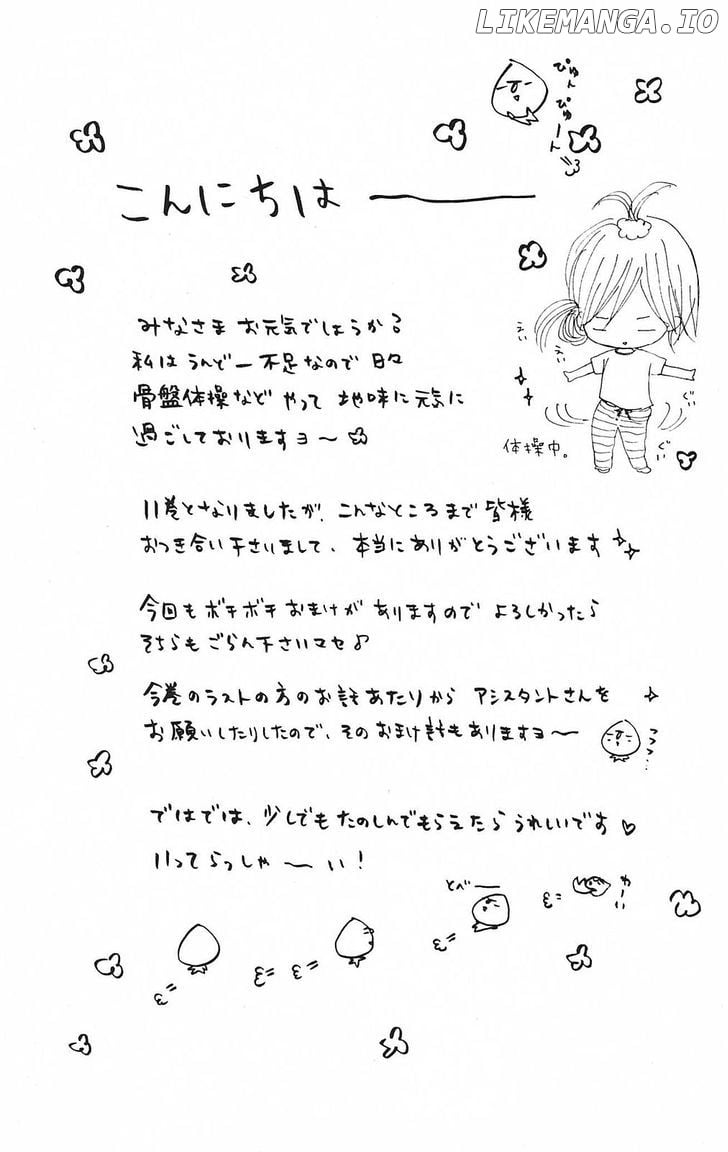 LIKEMANGA.IO
ぴゅん
ぴゅーん
こんにちは ー
みなさま お元気でしょうか?
私は うんどー不足なので 日々
骨盤体操など やって 地味に元気に
過ごしておりますヨ〜
えい
えい
ぐい
ぐい
体操中。
11巻となりましたが、こんなところまで皆様
おつき合い下さいまして、本当にありがとうございます
今回もボチボチおまけが ありますので よろしかったら
そちらも ごらん下さいマセ♪
今巻のラストの方のお話あたりから アシスタントさんを
お願いしたりしたので、そのおまけ話もありますヨ〜
フフフ…
ではでは、少しでもたのしんでもらえたら うれしいです♡
いってらっしゃ〜い!
とべー
わーい